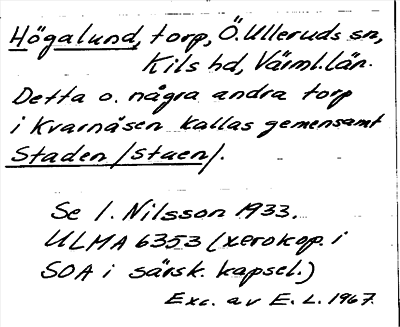 Högalund, torp, Ö. Ulleruds sn,
Kils hd, Värml. län.
Detta o. några andra torp
i Kvarnåsen kallas gemensamt
Staden /Staen/.
Se I. Nilsson 1933.
ULMA 6353 (xerokop. i
SOA i särsk. kapsel.)
Exc. av E. L. 1967.